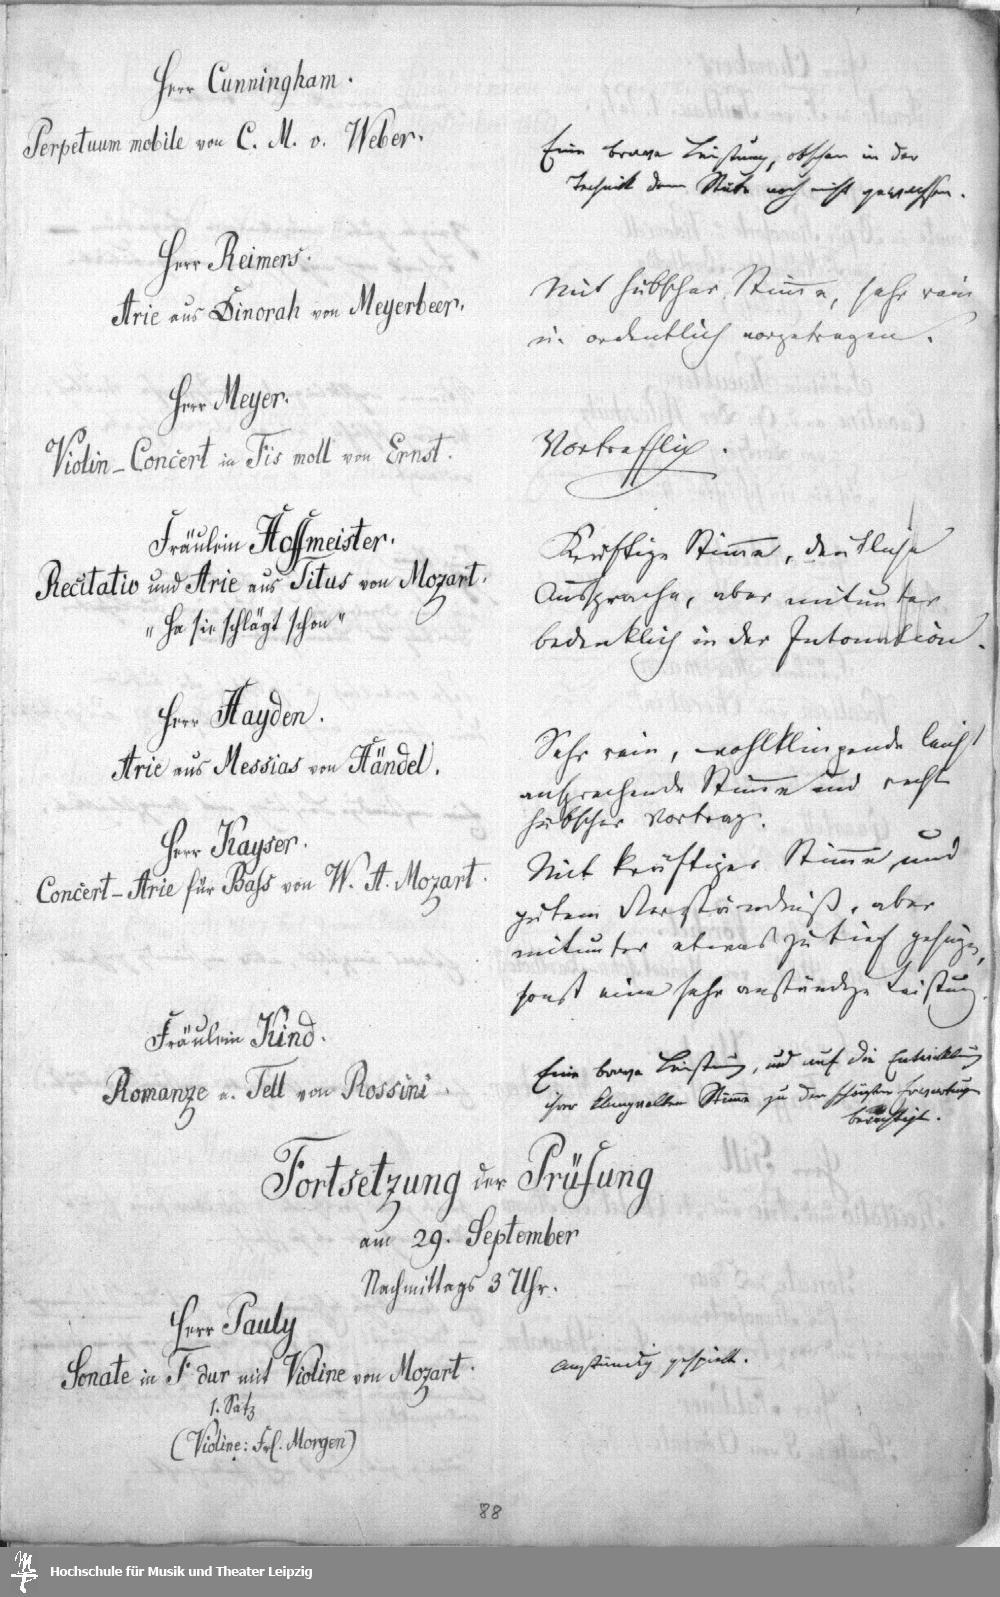 Herr Cunningham.
Perpetuum mobile von C. M. v. Weber.
Eine brave Leistung, obschon in der
Technik dem Stück noch nicht gewachsen.
Herr Reimers.
Arie aus Dinorah von Meyerbeer.
Mit hübscher Stimme, sehr rein
u. ordentlich vorgetragen.
Herr Meyer.
Violin-Concert in Fis moll von Ernst.
Vortrefflich.
Fräulein Hoffmeister.
Recitativ und Arie aus Titus von Mozart.
"Ha sie schlägt schon"
Kräftige Stimme, deutliche
Aussprache, aber mitunter
bedenklich in der Intonation.
Herr Hayden.
Arie aus Messias von Händel.
Sehr rein, wohlklingende leicht
ansprechende Stimme und recht
hübscher Vortrag.
Herr Kayser.
Concert-Arie für Bass von W. A. Mozart.
Mit kräftiger Stimme, und
gutem Verständniß, aber
mitunter etwas zu tief gesungen,
sonst eine sehr anständige Leistung.
Fräulein Kind.
Romanze a. Tell von Rossini.
Eine brave Leistung, und auf die Entwicklung
ihrer klangvollen Stimme zu den schönsten Erwartungen
berechtigt.
Fortsetzung der Prüfung
am 29. September
Nachmittags 3 Uhr.
Herr Pauly
Sonate in F dur mit Violine von Mozart.
1. Satz
(Violine: Frl. Morgen)
anständig gespielt.
88
Hochschule für Musik und Theater Leipzig